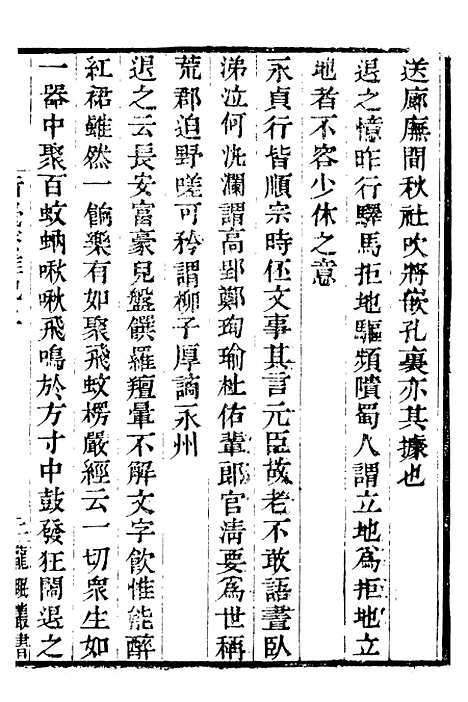 送廊廡間秋社吹將嵌孔裏亦其據也
退之憶昨行驛馬拒地驅頻隤蜀人謂立地爲拒地立
地者不容少休之意
永貞行皆順宗時伾文事其言元臣故老不敢語晝臥
涕泣何汍瀾謂高郢鄭珣瑜杜佑輩郎官清要爲世稱
荒郡迫野嗟可矜謂柳子厚謫永州
退之云長安富豪兒盤饌羅羶暈不解文字飲惟能醉
紅裙雖然一餉樂有如聚飛蚊楞嚴經云一切衆生如
一器中聚百蚊蚋啾啾飛鳴於方寸中鼓發狂鬧退之
龍眠叢書